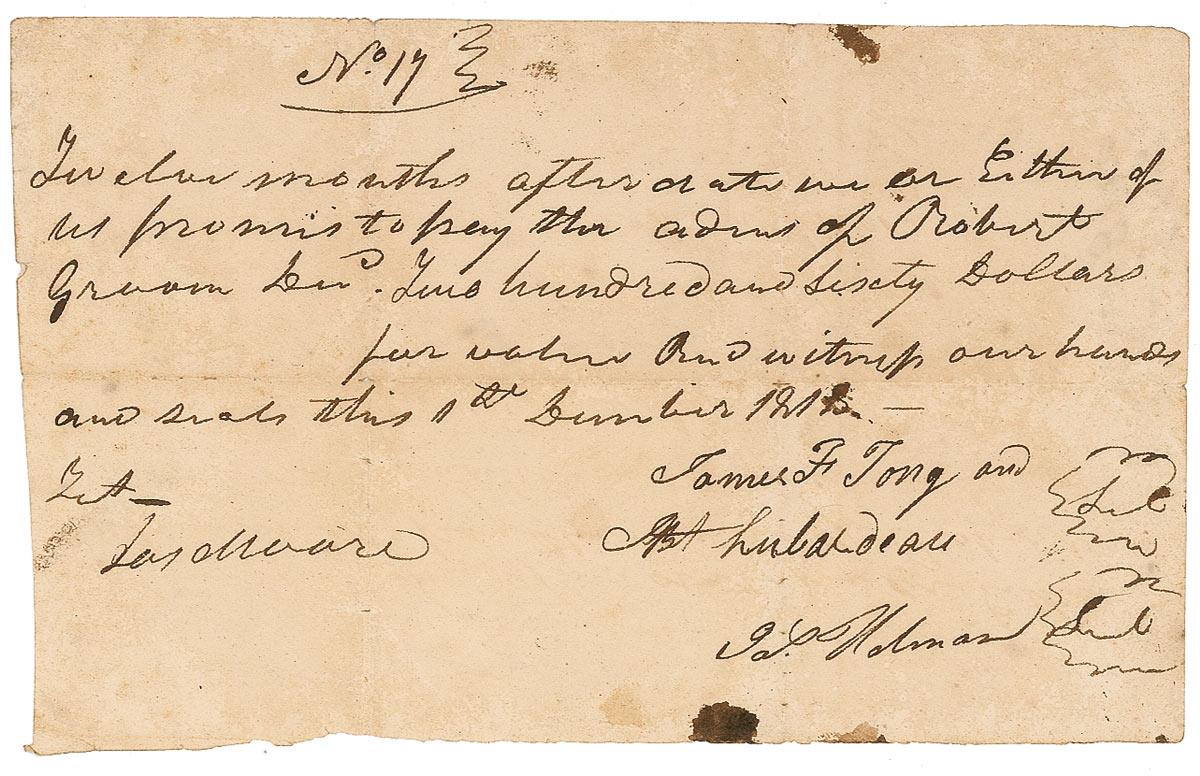 No. 17
Twelve months after date we or Either of
us promis to pay the adms of Robert
Groom Decd. Two hundred and Sixty Dollars
for value And witness our hands
and seals this 1st December 1818. —
Tet —
James F Tong and
Seal
Jas Moore
Bt
J. S. Holman
Seal